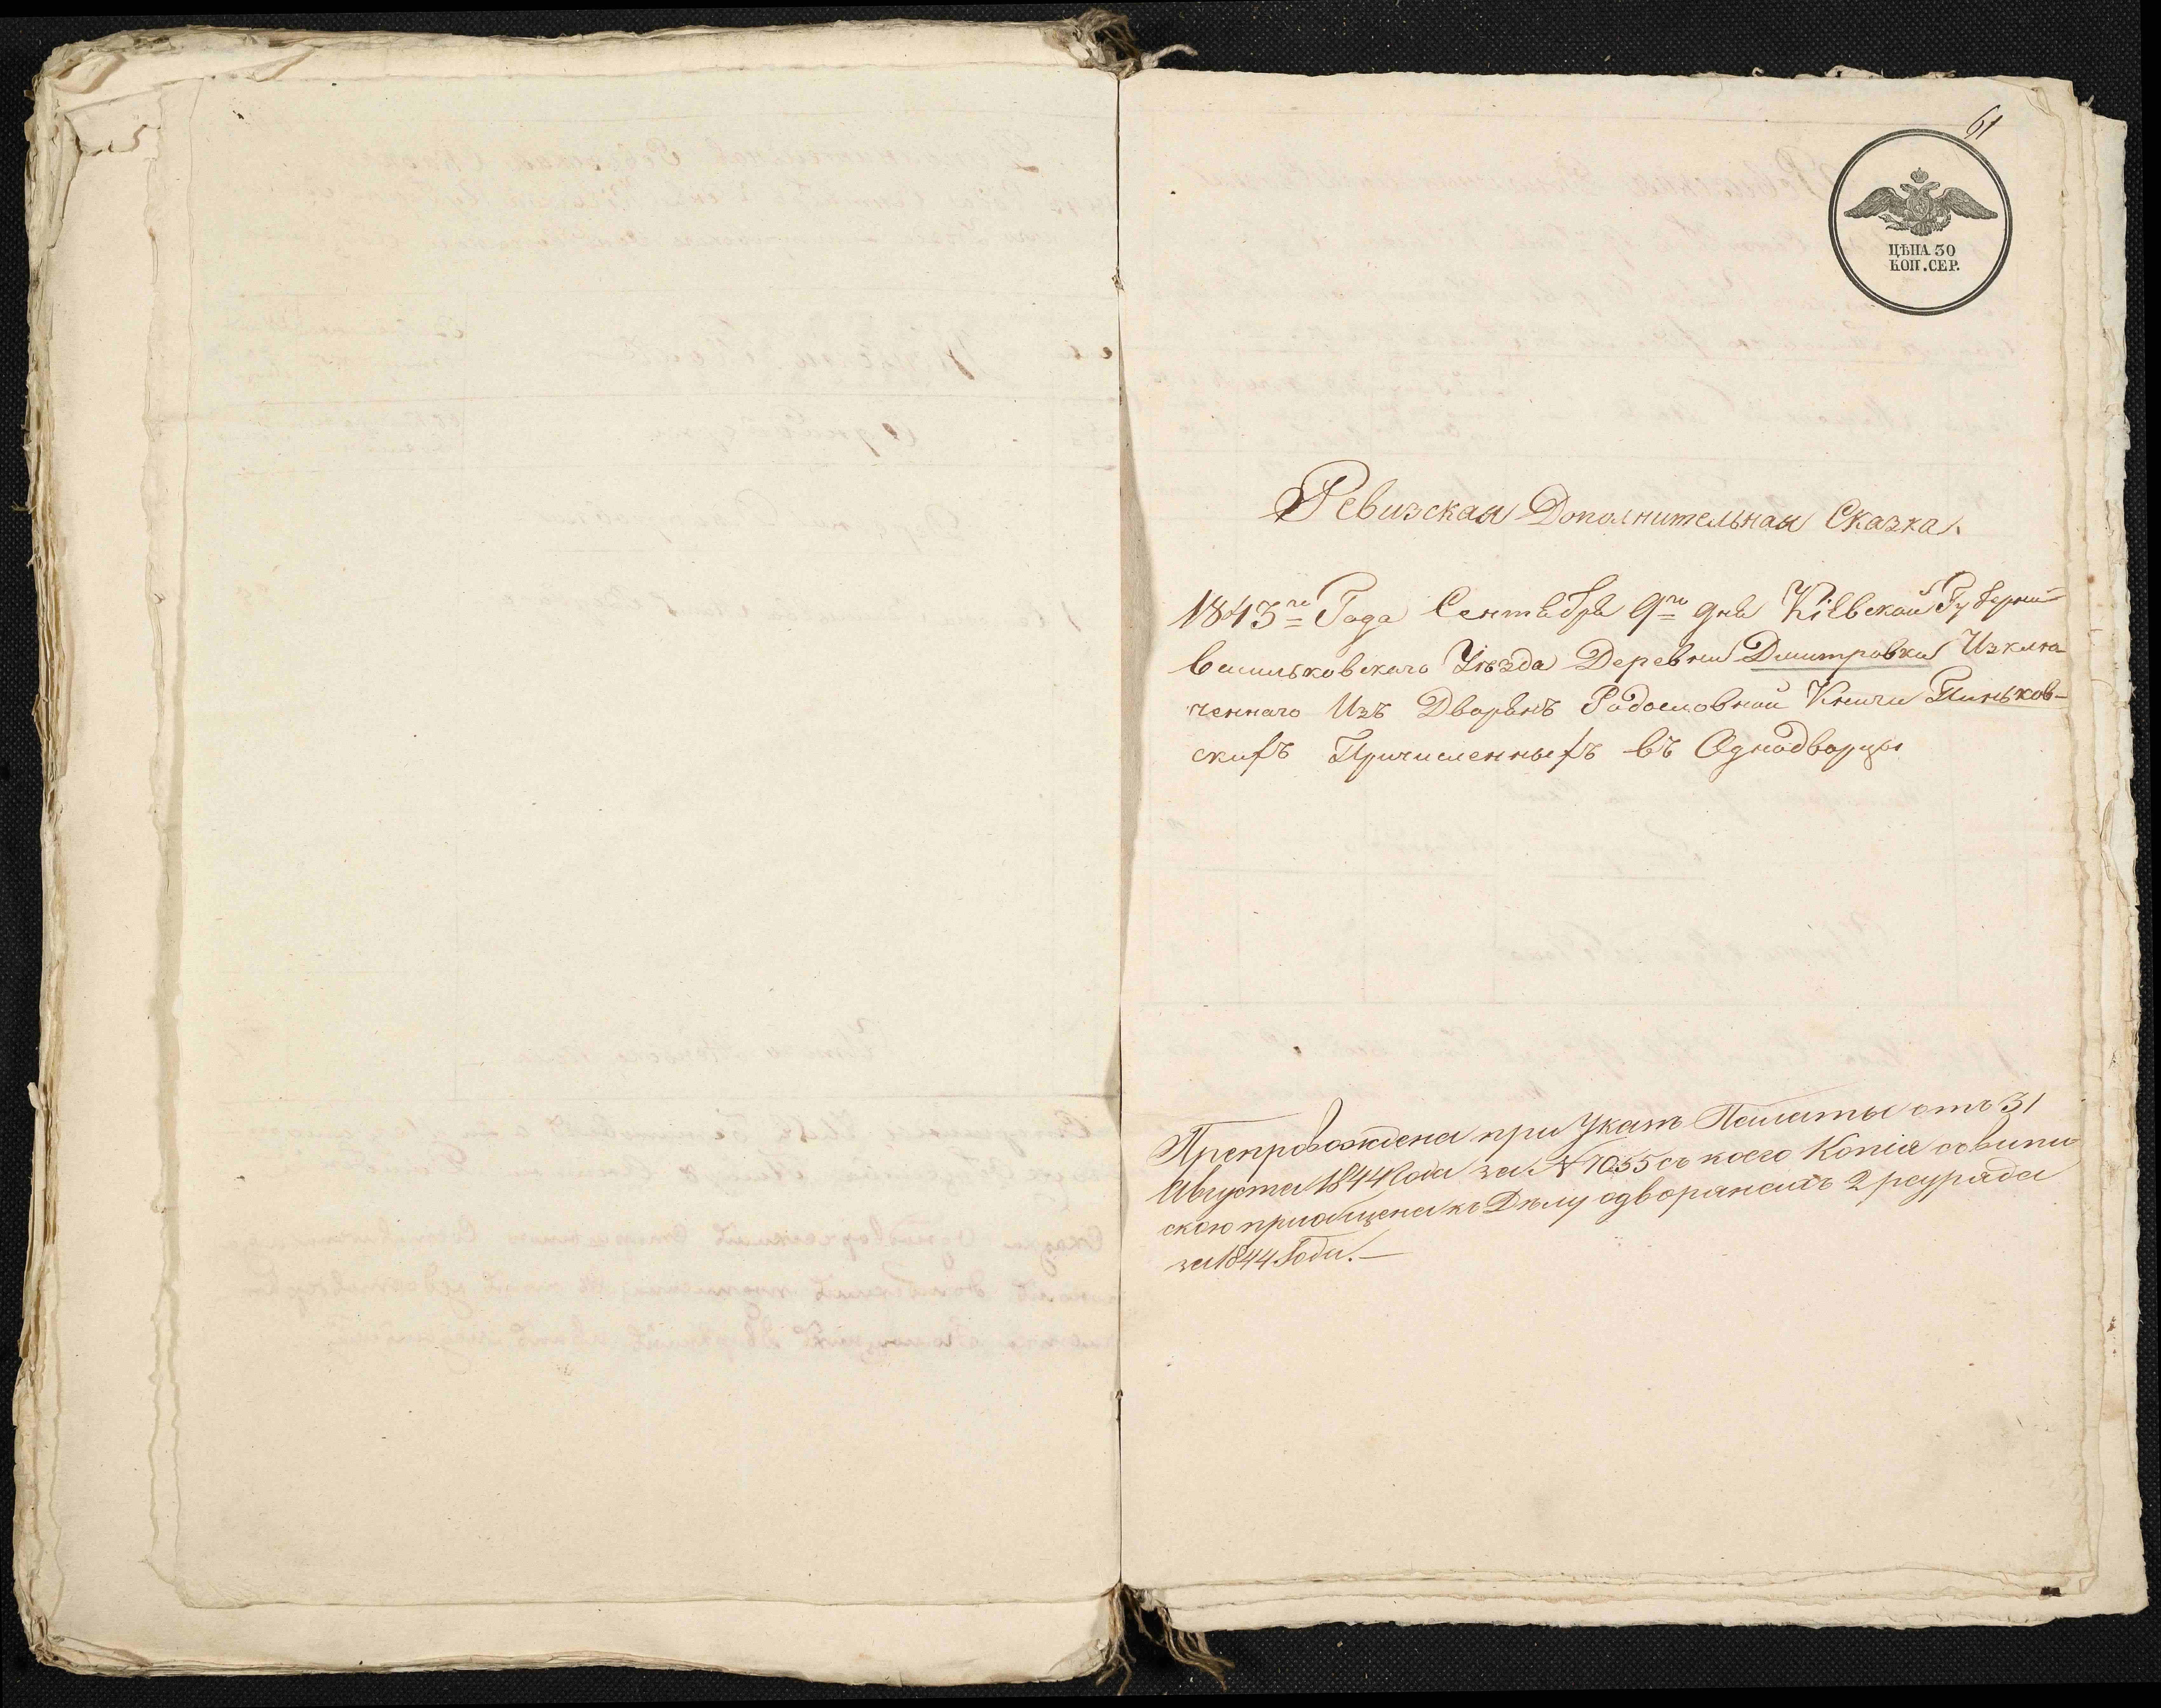 61
ЦѢНА 30
КОП. СЕР.
Ревизская Дополнительная Сказка.
1843го Года Сентября 9го дня Кіевской Губерніи
Васильковскаго Уѣзда Деревни Дмитровки Изклю-
ченнаго Изъ Дворянъ Родословной Книги Пиньков-
скихъ Причисленныхъ въ Однодворцы
Препровождена при Указѣ Палаты отъ 31
Августа 1844 Года за № 7055 съ коего Копія
скою приобщена къ Дѣлу о дворянахъ 2 разряда
за 1844 Годъ.—